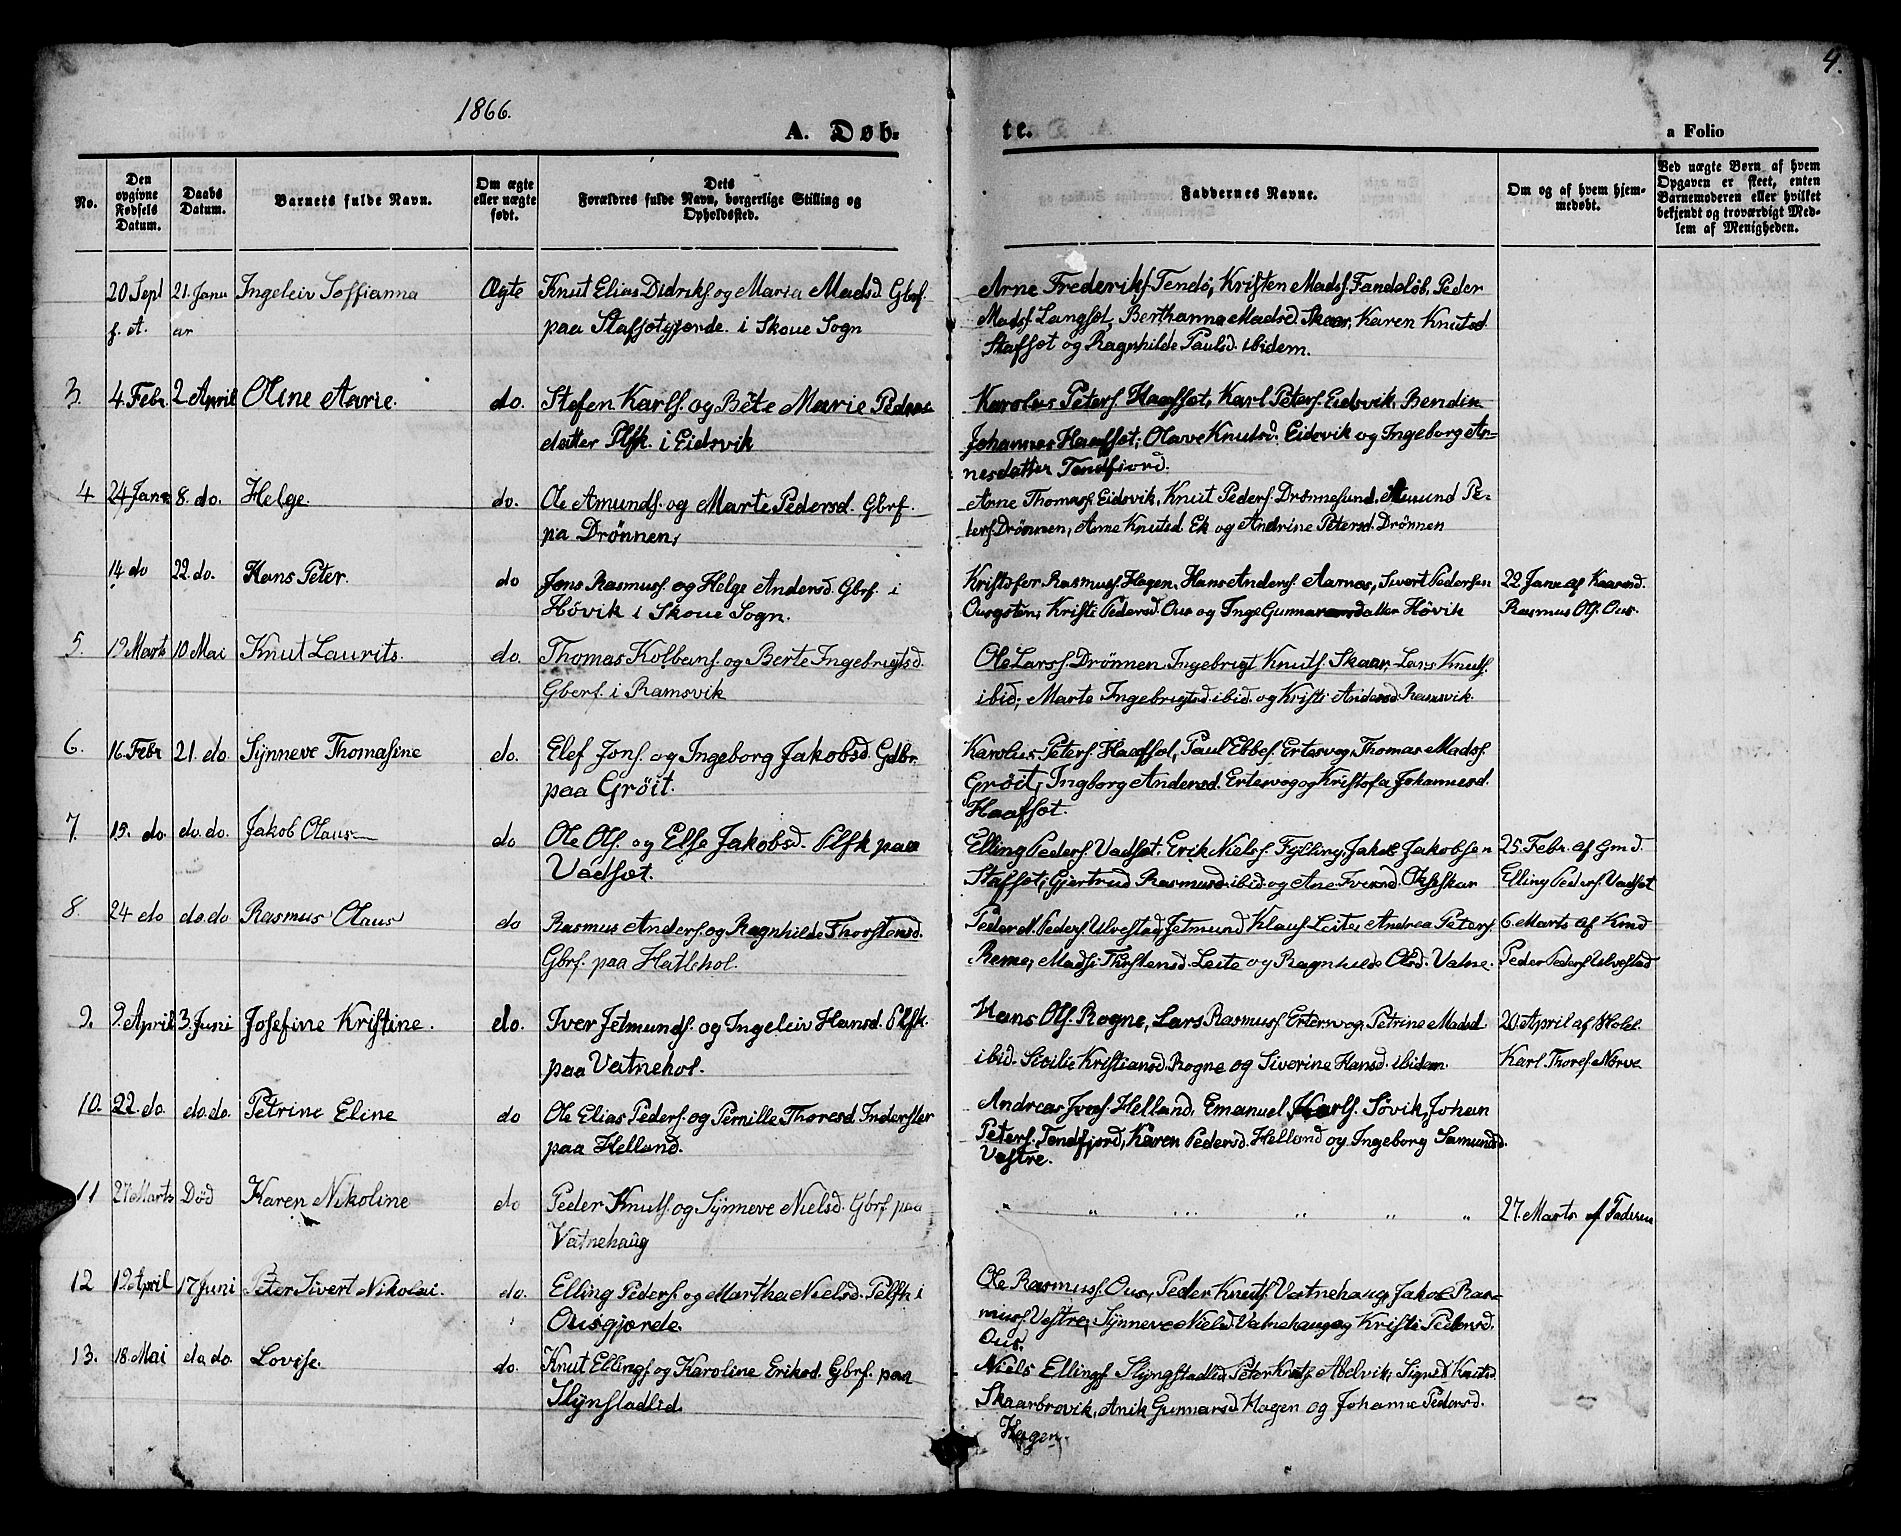 4.
1866.
A. Døb-
te.
a Folio
No.
Den
opgivne
Fødsels
Datum.
Daabs
Datum.
Barnets fulde Navn.
Om ægte
eller uægte
født.
Dets
Forældres fulde Navn, borgerlige Stilling og
Opholdssted.
Faddernes Navne.
Om og af hvem hjem-
medøbt.
Ved uægte Børn, af hvem
Opgaven er skeet, enten
Barnemoderen eller hvilket
bekjendt og troværdigt Med-
lem af Menigheden.
20 Sept 21. Janu Ingeleiv Soffianna Ægte Knut Elias Didriks. og Maria Madsd. Gbrf.
f. A. ar paa Stafsetgjærde i Skoue Sogn
Arne Frederiks. Tendø, Kristen Mads. Fandeløb, Peder
Mads. Langset, Berthanna Madsd. Skaar, Karen Knutsd.
Stafset og Ragnhilde Paulsd. ibidem.
3. 4. Febr. 2 April Oline Aarie. do. Stefen Karls. og Bete Marie Peders
datter Plfk. i Eidsvik
Karolus Peters. Haafset, Karl Peters. Eidsvik, Bendik
Johannes Haafset, Olave Knutsd. Eidsvik og Ingeborg Ar-
nesdatter Tendfjord.
4. 24 Janr 8. do. Helge. do. Ole Amunds. og Marte Pedersd. Gbrf.
pa Drønnen,
Arne Thomas. Eidsvik, Knut Peders. Drønnesund, Amund Pe-
ters. Drønnen, Arne Knutsd. Ek og Andrine Petersd. Drønnen
14 do 22. do. Hans Peter. do Jons Rasmus. og Helge Andersd. Gbrf. i
Høvik i Skoue Sogn.
Kristofer Rasmus. Hagen, Hans Anders. Aarnes, Sivert Pedersen
Ousgsten, Kristi Pedersd. Ous og Inge Gunnarsdatter Høvik
22 Janr. af Kaarmd.
Rasmus Ols. Ous.
5. 19 Marts 10 Mai Knut Laurits. do. Thomas Kolbens. og Berte Ingebrigtsd.
Gberf. i Ramsvik
Ole Lars. Drønnen, Ingebrigt Knuts. Skaar, Lars Knuts.
ibid; Marte Ingebrigtsd. ibid. og Kristi Andersd. Ramsvik.
6. 16. Febr 21. do. Synneve Thomasine do. Elef Jons. og Ingeborg Jakobsd. Gdbr.
paa Grøit.
Karolus Peters. Haafset, Paul Ebbes. Ertesvog, Thomas Mads.
Grøit, Ingborg Andersd. Ertesvog og Kristofa Johannesd.
Haafset.
7. 15. do do. do. Jakob Olaus do Ole Ols. og Else Jakobsd. Plfk paa
Vadset.
Elling Peders. Vadset, Erik Niels. Fylling, Jakob Jakobsen
Stafset, Gjertrud Rasmusd. ibid. og Ane Iversd. Okseskar
25. Febr. af Gmd.
Elling Peders. Vadset
8. 24 do do. do Rasmus Olaus do Rasmus Anders. og Ragnhilde Thorstensd.
Gbrf. paa Hatlehol.
Peder Peders. Ulvestad, Jetmund Klaus. Leite, Andrea Peters.
Reme, Madsi Thorstensd. Leite og Ragnhilde Olsd. Vatne.
6. Marts af Kmd
Peder Peders. Ulvestad
9. 9. April 3. Juni Josefine Kristine. do. Iver Jetmunds. og Ingeleiv Hansd. Plfk.
paa Vatnehol.
Hans Ols. Rogne, Lars Rasmus. Ertesvog, Petrine Madsd
ibid. Sicilie Kristiansd. Rogne og Siverine Hansd. ibidem.
20. April af Skolel.
Karl Thores. Nørve
10. 22. do. do. do. Petrine Eline do Ole Elias Peders. og Pernille Thoresd. Inderster
paa Helland.
Andreas Ivers. Helland, Emanuel Karls. Søvik, Johan
Peters. Tendfjord, Karen Pedersd. Helland og Ingeborg Samundsd.
Vestre.
11 27 Marts Død Karen Nikoline do Peder Knuts. og Synneve Nielsd. Gbrf. paa
Vatnehaug
" " " " " "
27. Marts af Faderen
12 19. April 17 Juni Peter Sivert Nikolai. do. Elling Peders. og Martha Nielsd. Pelfk i
Ousgjærde.
Ole Rasmus. Ous, Peder Knuts. Vatnehaug, Jakob Ras-
mus. Vestre, Synneve Nielsd. Vatnehaug og Kristi Pedersd.
Ous.
13. 18. Mai do. do. Lovise. do. Knut Ellings. og Karoline Eriksd. Gbrf. paa
Slynstadlid.
Niels Ellings. Slyngstadlid, Peter Knuts. Abelvik, Signe Knutsd.
Skaarbrovik, Anik Gunnarsd. Hagen og Johanne Pedersd.
Hagen.